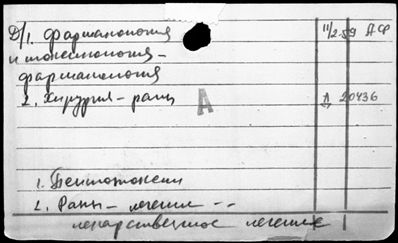 Д/1. Фармакология 11/2.59 ДФ
и токсикология -
фармакология
2. Хирургия - раны Д 20436
А
1. Пентотоксил
2. Раны - лечение - -
лекарственное лечение